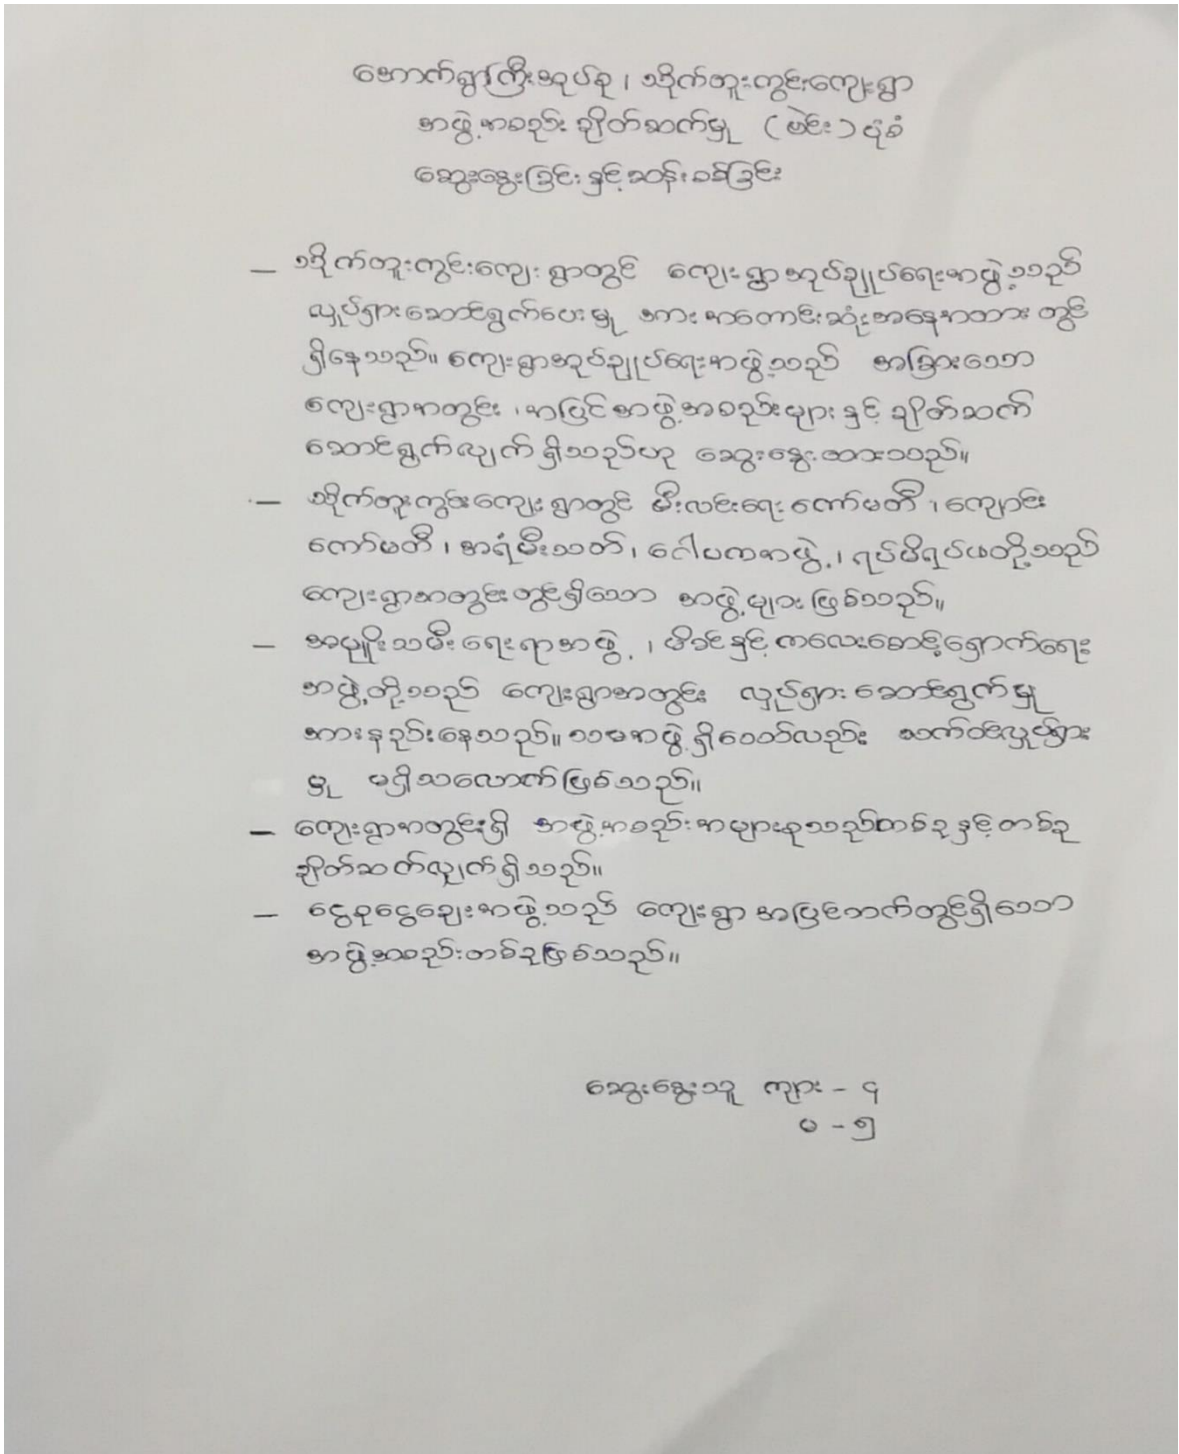 အောက်ရွာကြီးအုပ်စု ၊ သိုက်တူးကွင်းကျေးရွာ
အဖွဲ့အစည်း ချိတ်ဆက်မှု ( ဗဲင်း ) ပုံစံ
ဆွေးနွေးခြင်း နှင့် ဆန်းစစ်ခြင်း
– သိုက်တူးကွင်းကျေးရွာတွင် ကျေးရွာအုပ်ချုပ်ရေးအဖွဲ့သည်
လှုပ်ရှားဆောင်ရွက်ပေးမှု အားအကောင်းဆုံးအနေအထားတွင်
ရှိနေသည်။ ကျေးရွာအုပ်ချုပ်ရေးအဖွဲ့သည် အခြားသော
ကျေးရွာအတွင်း ၊ အပြင်အဖွဲ့အစည်းများ နှင့် ချိတ်ဆက်
ဆောင်ရွက်လျှက်ရှိသည်ဟု ဆွေးနွေးထားသည်။
– သိုက်တူးကွင်းကျေးရွာတွင် မီးလင်းရေးကော်မတီ ၊ ကျောင်း
ကော်မတီ ၊ အရံမီးသတ် ၊ ဂေါပကအဖွဲ့ ၊ ရပ်မိရပ်ဖတို့သည်
ကျေးရွာအတွင်းတွင်ရှိသော အဖွဲ့များဖြစ်သည်။
– အမျိုးသမီးရေးရာအဖွဲ့ ၊ မိခင်နှင့်ကလေးစောင့်ရှောက်ရေး
အဖွဲ့တို့သည် ကျေးရွာအတွင်း လှုပ်ရှားဆောင်ရွက်မှု
အားနည်းနေသည်။ သမအဖွဲ့ရှိသော်လည်း သက်ဝင်လှုပ်ရှား
မှု မရှိသလောက်ဖြစ်သည်။
– ကျေးရွာအတွင်းရှိ အဖွဲ့အစည်းအများစုသည်တစ်ခုနှင့်တစ်ခု
ချိတ်ဆက်လျှက်ရှိသည်။
– ငွေစုငွေချေးအဖွဲ့သည် ကျေးရွာအပြင်ဘက်တွင်ရှိသော
အဖွဲ့အစည်းတစ်ခုဖြစ်သည်။
ဆွေးနွေးသူ ကျား – ၄
မ – ၅